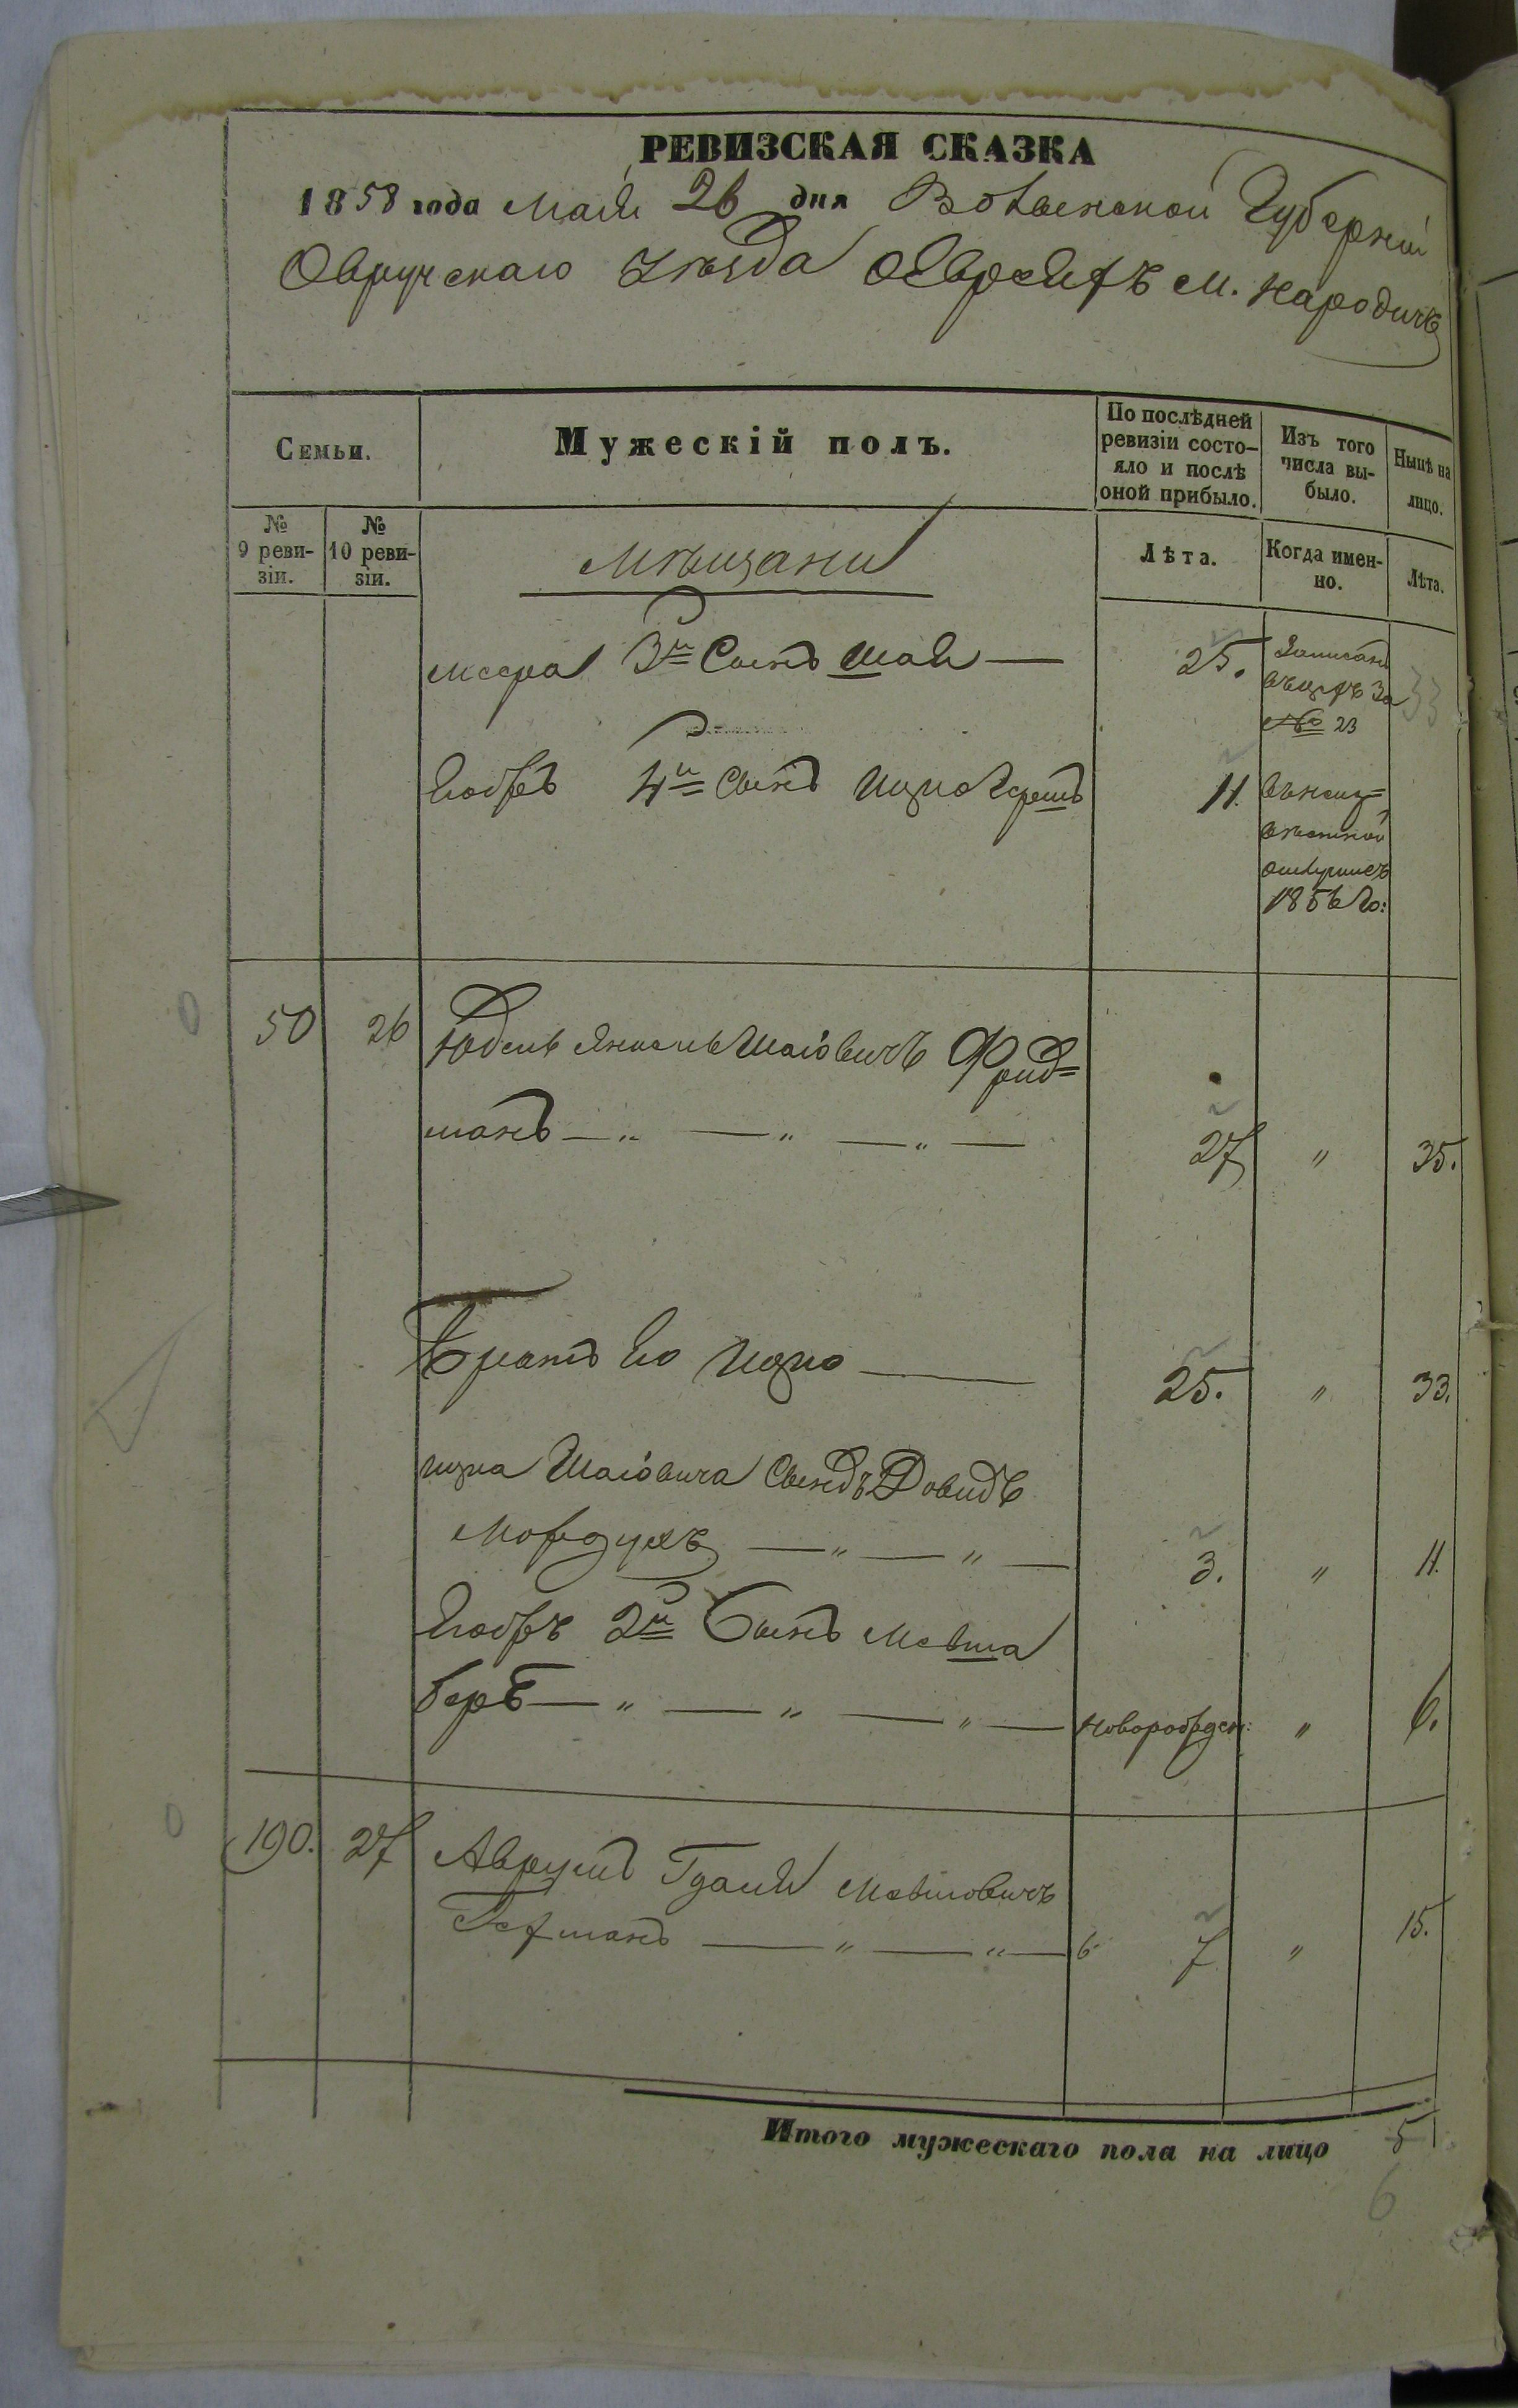 РЕВИЗСКАЯ СКАЗКА
1858 года Мая 26 дня Волынской Губерніи
Овручскаго Уѣзда Евреевъ м. Народичъ
Семьи.
Мужескій полъ.
По послѣдней ревизіи состо-яло и послѣ оной прибыло.
Изъ того числа вы-было.
Нынѣ на лицо.
№ 9 реви-зіи.
№ 10 реви-зіи.
Мѣщани
Лѣта.
Когда имен-но.
Лѣта.
3й Сынъ Шая — 25. Записанъ За № 23 33
Егожъ 4й Сынъ Ицко Гершъ 11. въ неиз=
вѣстной
отлучкѣ
1856 го:
50 26 Юдель Янкель Шаіовичъ Фрид=
манъ — „ — „ — „ — 27 „ 35.
Братъ Его Ицко — 25. „ 33.
Ицка Шаіовича Сынъ Довидъ
Мордухъ — „ — „ — 3. „ 11.
Егожъ 2й Сынъ Мовша
Беръ — „ — „ — „ — новорожден: „ 6.
190. 27 Аврумъ Мовшовичъ
— „ — „ — 6 7 „ 15.
Итого мужескаго пола на лицо 5
6